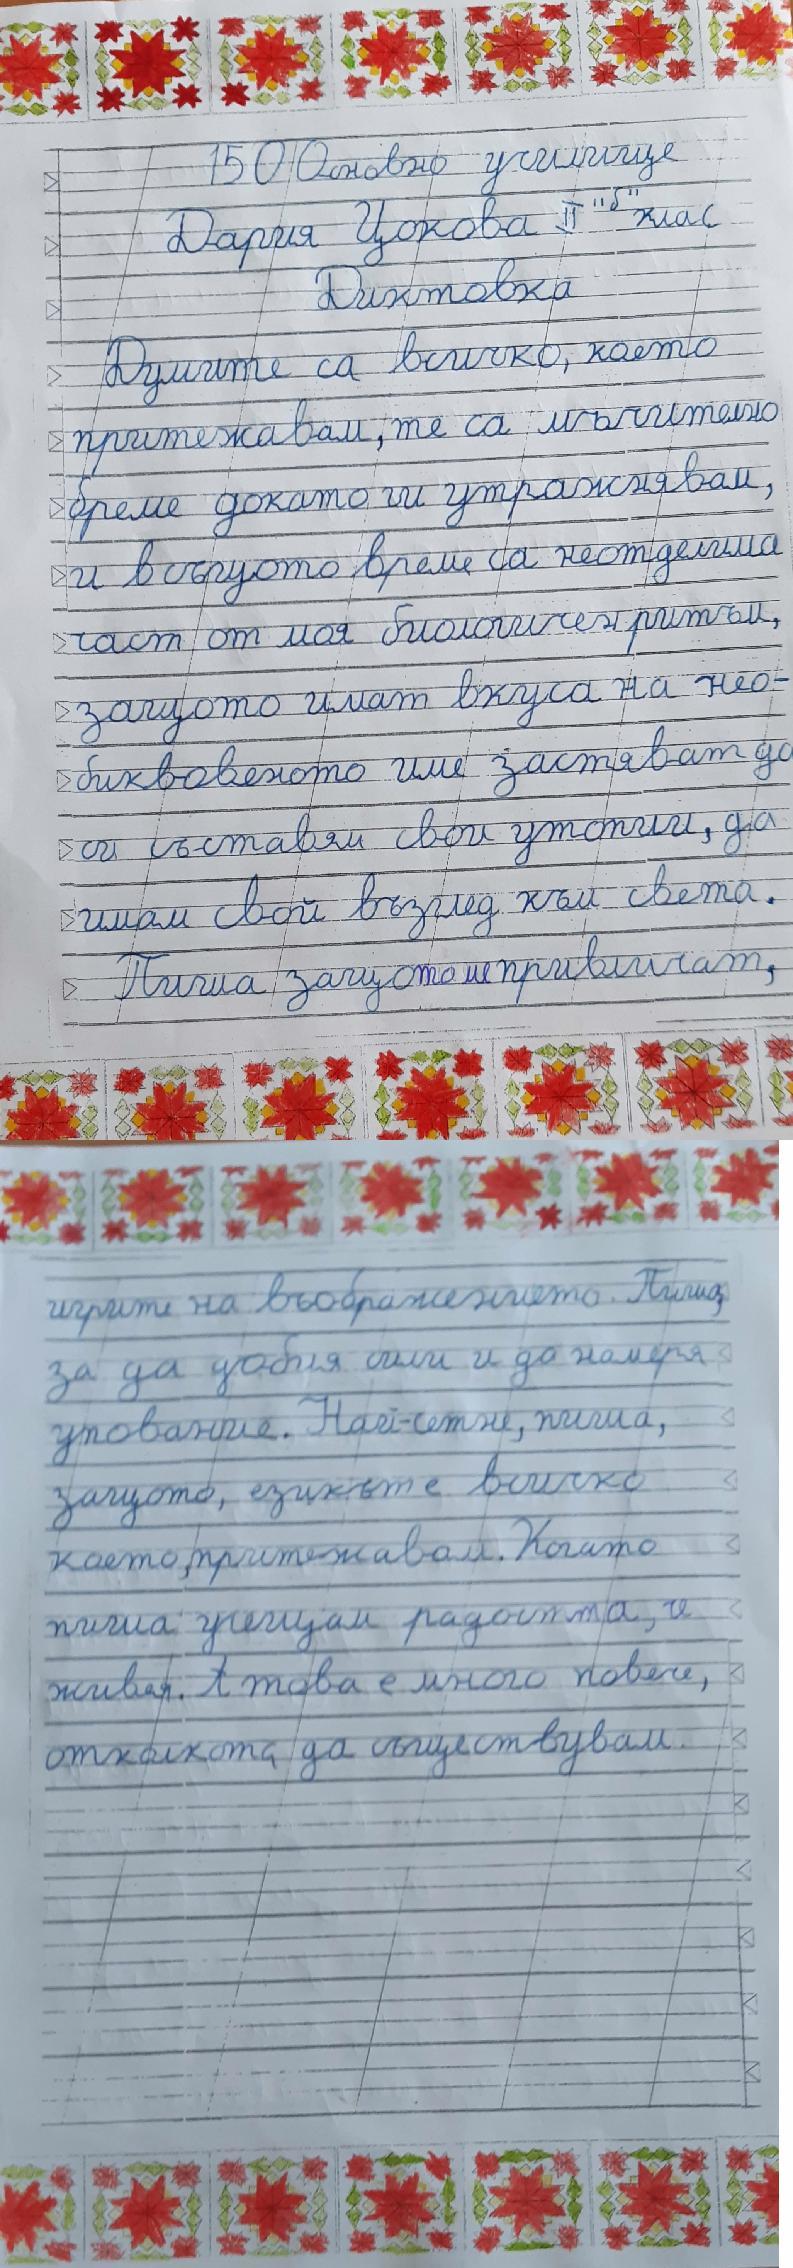 150 Основно училище
Дария Цокова II "б" клас
Диктовка
Думите са всичко, което
притежавам, те са мъчително
бреме докато ги упражнявам,
и в същото време са неотделима
част от моя биологичен ритъм,
защото имат вкуса на нео-
биквовеното име застяват да
си съставям свои утопии, да
имам свой възглед към света.
Пиша защото ме привличат,
игрите на въображението. Пиша,
за да добия сили и да намеря
упование. Най-сетне, пиша,
защото, езикът е всичко
което, притежавам. Когато
пиша усещам радостта, че
живея. А това е много повече,
отколкото, да съществувам.